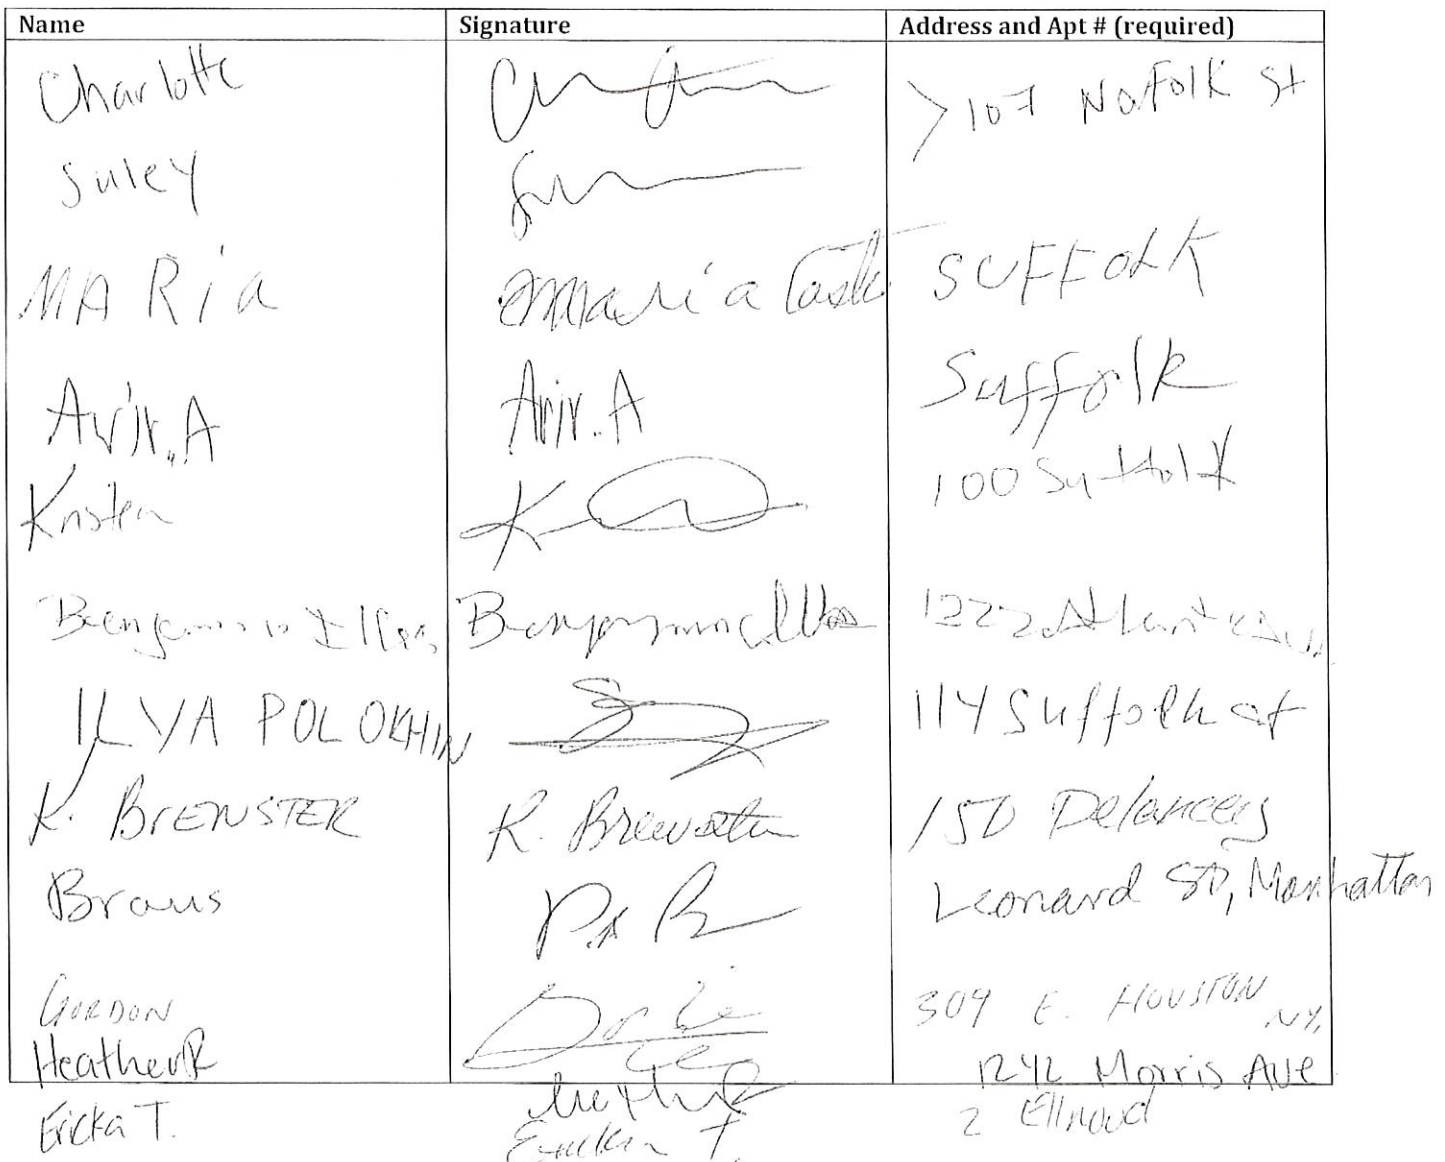 Name Signature Address and Apt # (required)
Charlotte > 107 Norfolk St
Suley
MARia Maria SUFFOLK
Avir.A Avir.A Suffolk
Kristen 100 Suffolk
Benjamin 1222
ILYA POLOKHIN 114 Suffolk st
K. BrEWSTER K. Brewster 150 Delancey
Braus Leonard St, Manhattan
GORDON 309 E. HOUSTON NY.
Heather R 1242 Morris Ave
Ericka T. Ericka T. 2